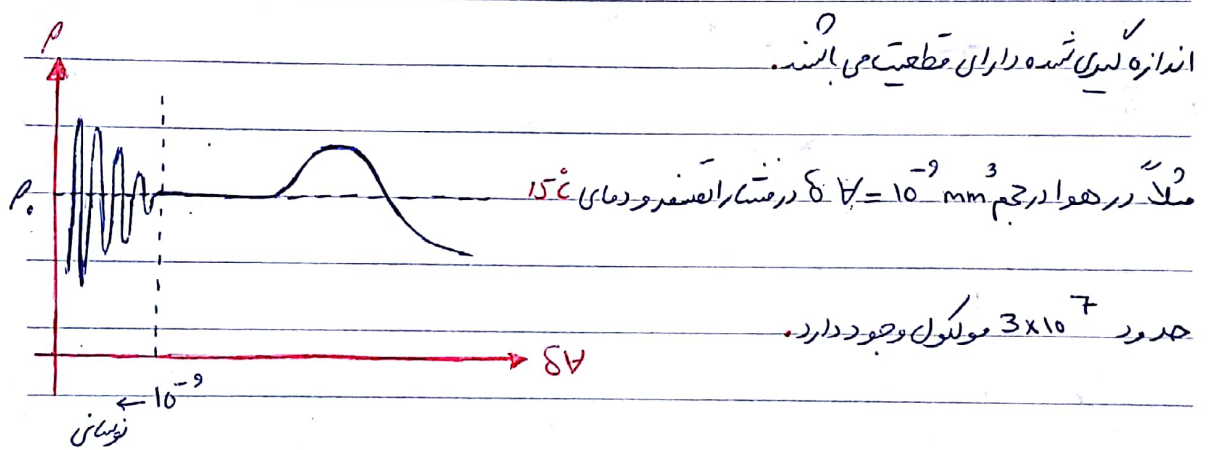 اندازه گیری شده دارای قطعیت می باشند.
مثلاً در هوا در حجم δV = 10⁻⁹ mm³ در فشار اتمسفر و دمای 15°C
حدود 3×10⁷ مولکول وجود دارد.
ρ
ρ₀
δV
← 10⁻⁹
نوسانی